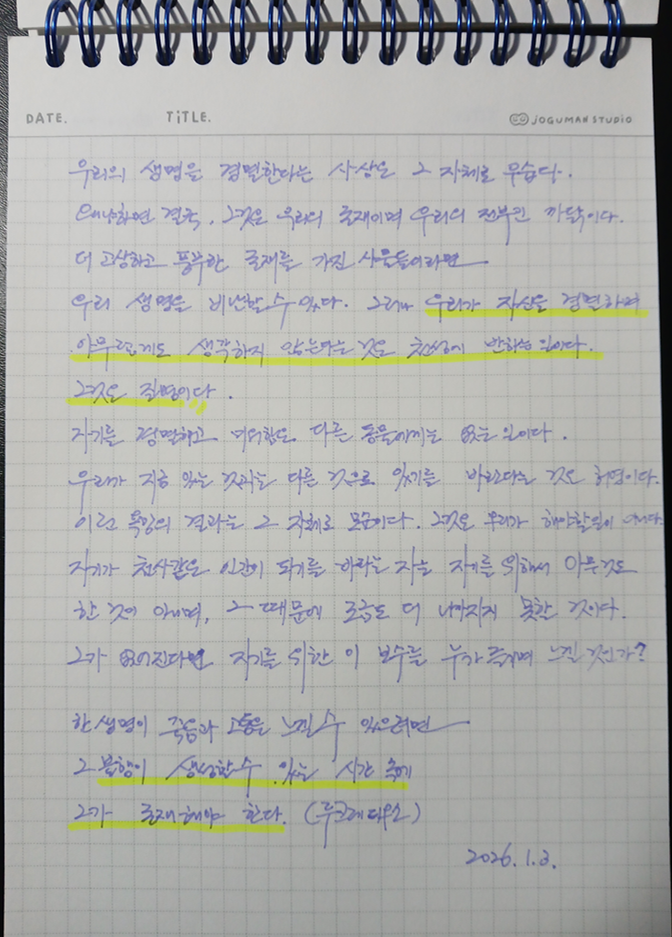 DATE. TiTLE. JOGUMAN STUDIO
우리의 생명을 경멸한다는 사상은 그 자체로 우습다.
왜냐하면 결국, 그것은 우리의 존재이며 우리의 전부인 까닭이다.
더 고상하고 풍부한 존재를 가진 사물들이라면
우리 생명을 비난할 수 있다. 그러나 우리가 자신을 경멸하며
아무렇게도 생각하지 않는다는 것은 천성에 반하는 일이다.
그것은 질병이다.
자기를 경멸하고 미워함은 다른 동물에게는 없는 일이다.
우리가 지금 있는 것과는 다른 것으로 있기를 바란다는 것도 허영이다.
이런 욕망의 결과는 그 자체로 모순이다. 그것은 우리가 해야할 일이 아니다.
자기가 천사같은 인간이 되기를 바라는 자는 자기를 위해서 아무것도
한 것이 아니며, 그 때문에 조금도 더 나아지지 못한 것이다.
그가 없어진다면 자기를 위한 이 보수를 누가 즐기며 느낄 것인가?
한 생명이 죽음과 고통을 느낄 수 있으려면
그 불행이 생성할 수 있는 시간 속에
그가 존재해야 한다. (루크레티우스)
2026.1.3.